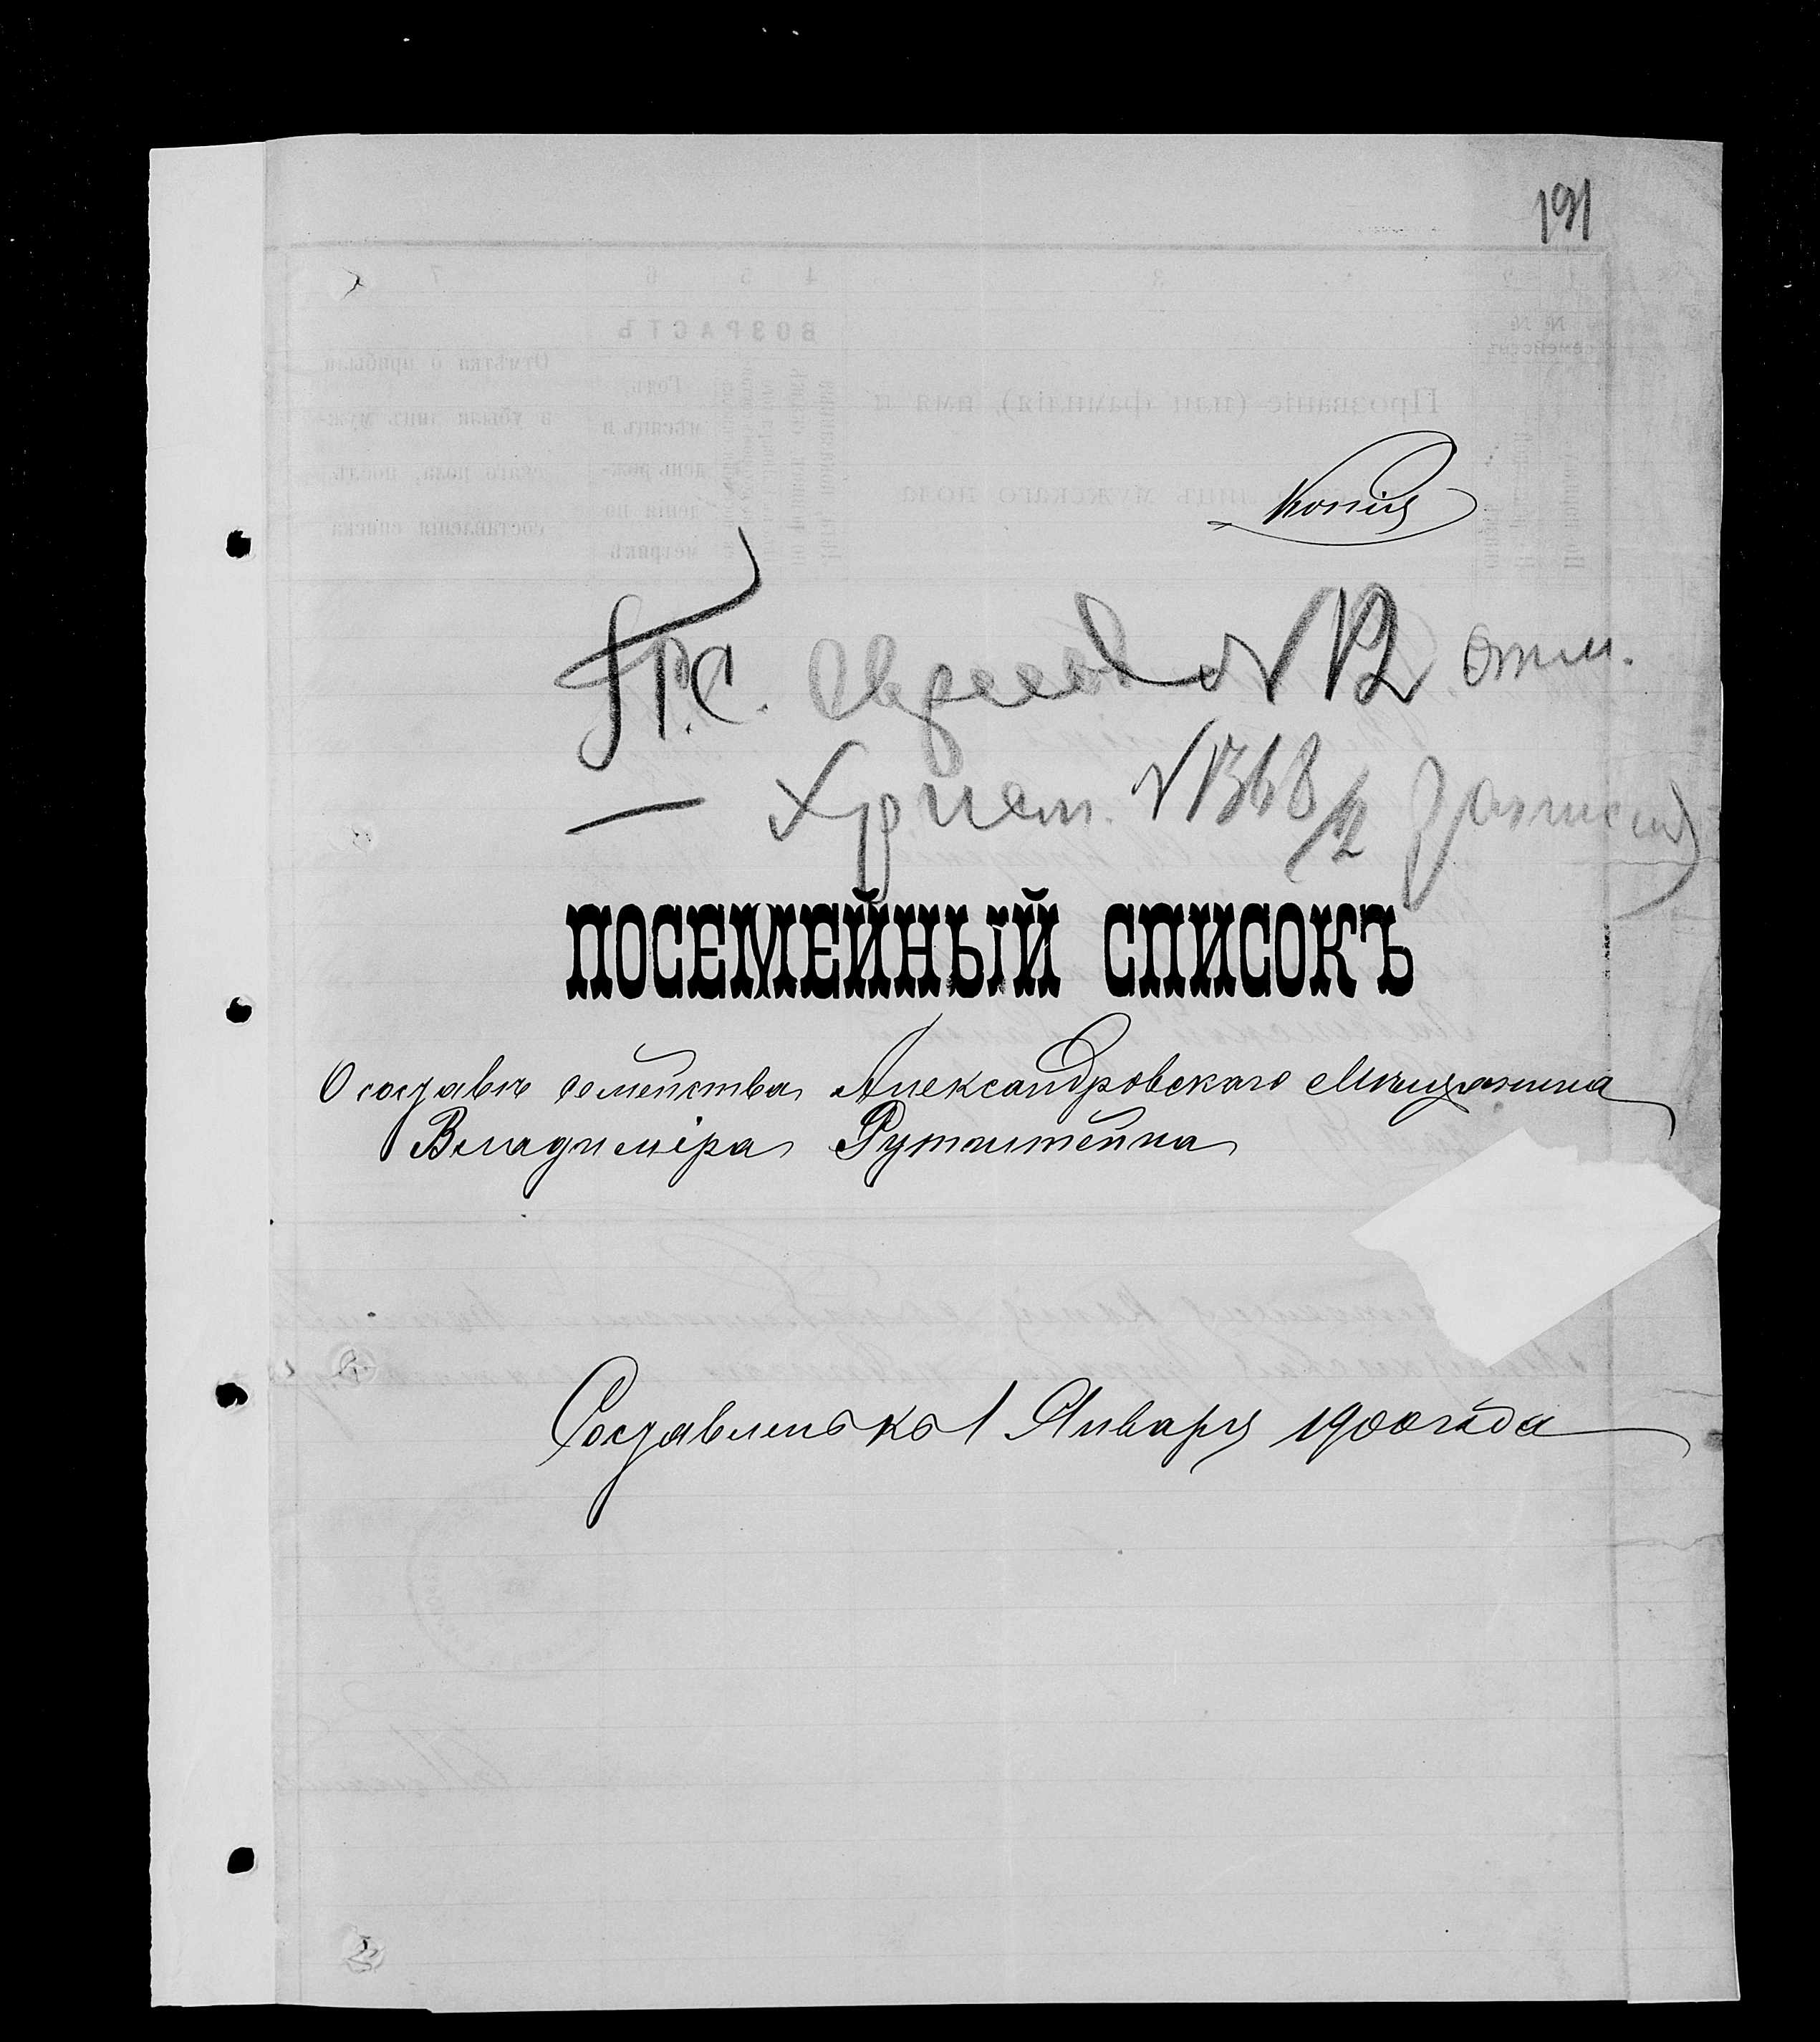 191
Копія
П.С. Евреевъ № 12 отм.
— Христ. № 1368/12 (записанъ)
ПОСЕМЕЙНЫЙ СПИСОКЪ
О составѣ семейства Александровскаго Мѣщанина
Владиміра Рутштейна
Составленъ къ 1 Января 1900 года